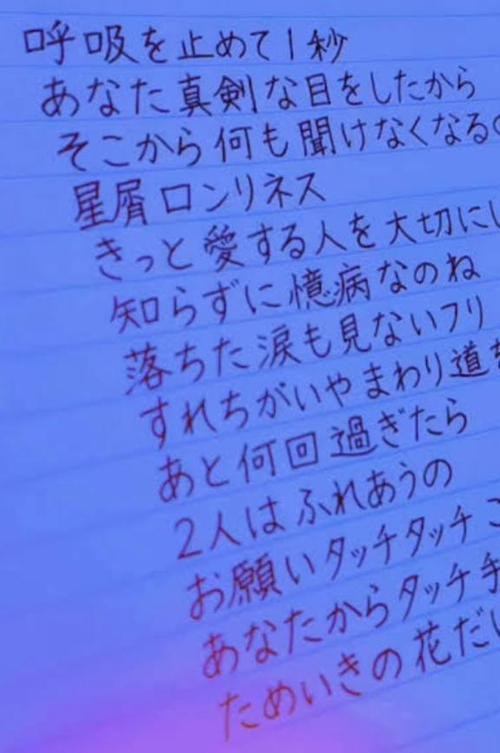 呼吸を止めて1秒
あなた真剣な目をしたから
そこから何も聞けなくなるの
星屑ロンリネス
きっと愛する人を大切にし
知らずに憶病なのね
落ちた涙も見ないフリ
すれちがいやまわり道を
あと何回過ぎたら
2人はふれあうの
お願いタッチタッチこ
あなたからタッチ手
ためいきの花だけ